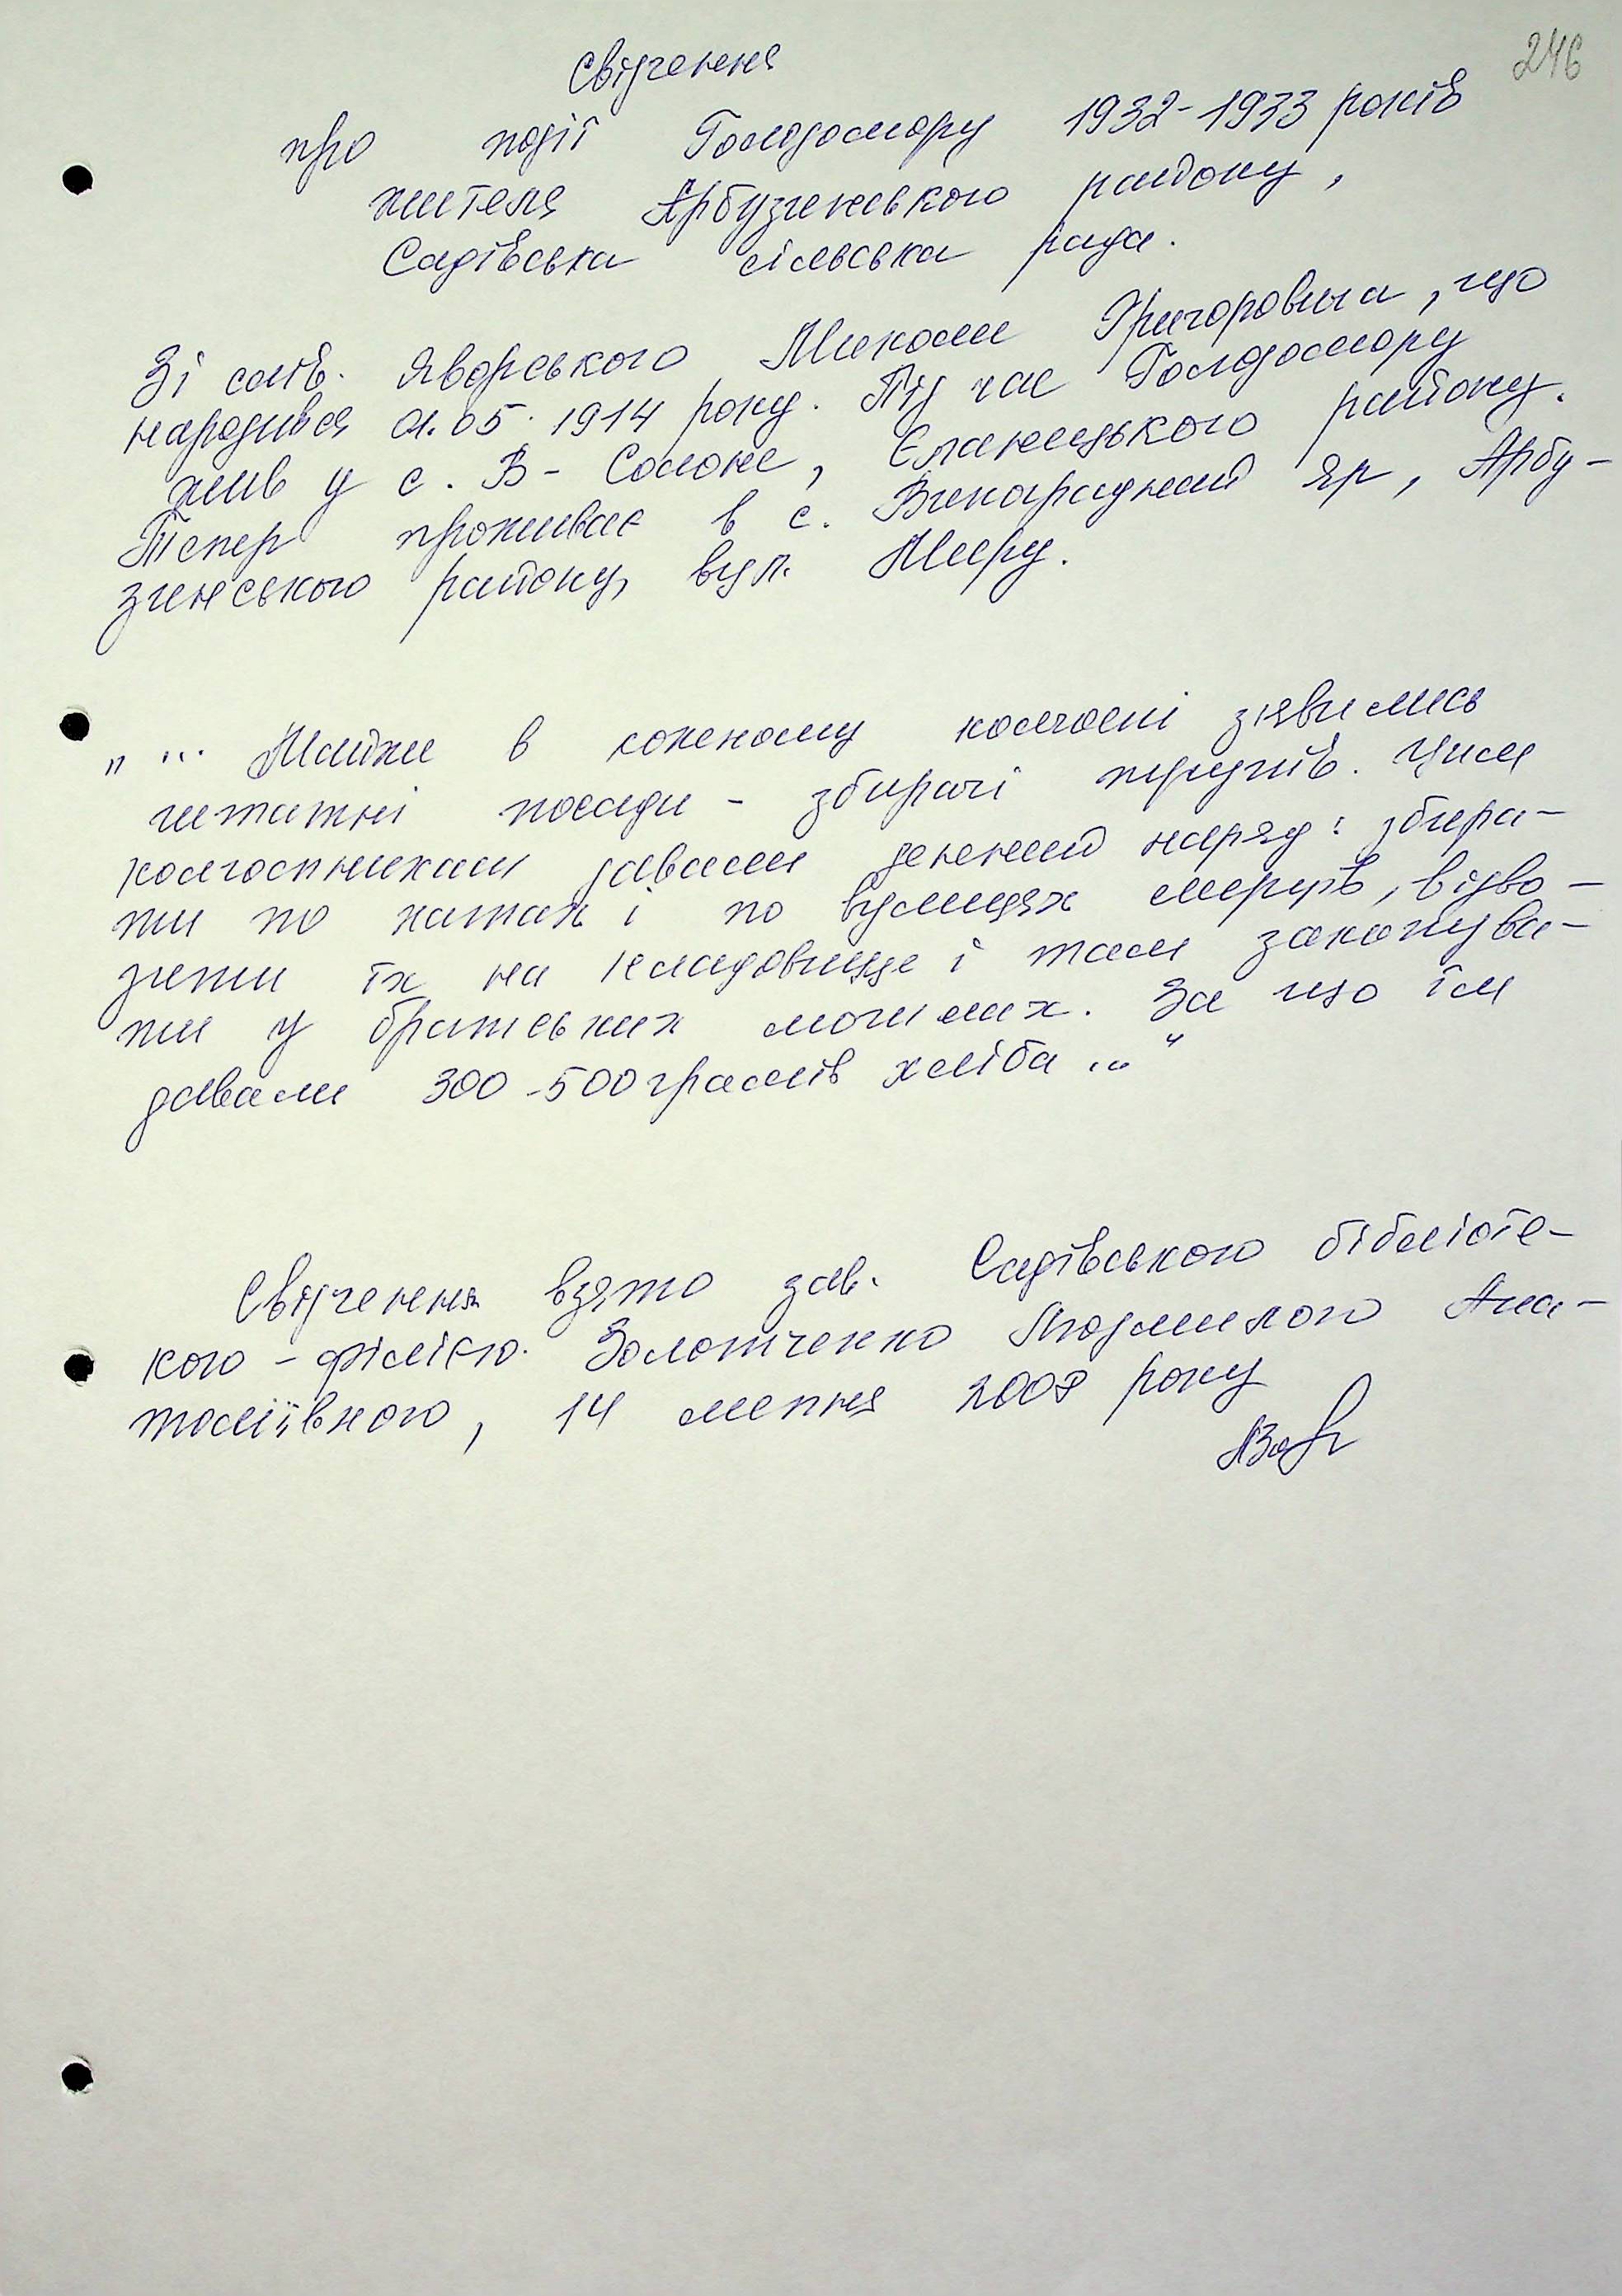 246
Свідчення
про події Голодомору 1932-1933 років
жителя Арбузинського району,
Садівська сільська рада.
Зі слів. Яворського Миколи Григоровича, що
народився 01.05.1914 року. Під час Голодомору
жив у с. В-Солоне, Єланецького району.
Тепер проживає в с. Виноградний Яр, Арбу-
зинського району, вул. Миру.
„... Майже в кожному колгоспі з'явились
штатні посади - збирачі трупів. Цим
колгоспникам давали денний наряд: збира-
ти по хатах і по вулицях мерців, відво-
зити їх на кладовище і там закопува-
ти у братських могилах. За що їм
давали 300-500 грамів хліба..."
Свідчення взято зав. Садівською бібліоте-
кою-філією. Золотченко Людмилою Ана-
толіївною, 14 липня 2008 року